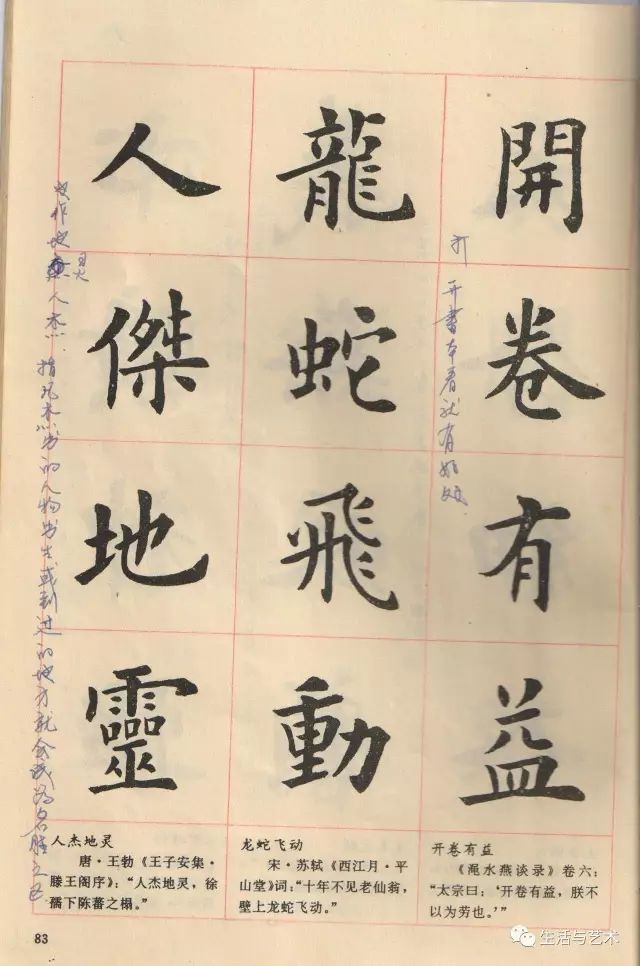 開卷有益
龍蛇飛動
人傑地靈
打开書本看就有好处
地灵人杰.指凡杰出的人物出生或到过的地方就会成为名胜之区.
人杰地灵
唐·王勃《王子安集·
滕王阁序》：“人杰地灵，徐
孺下陈蕃之榻。”
龙蛇飞动
宋·苏轼《西江月·平
山堂》词：“十年不见老仙翁，
壁上龙蛇飞动。”
开卷有益
《渑水燕谈录》卷六：
“太宗曰：‘开卷有益，朕不
以为劳也。’”
83
生活与艺术